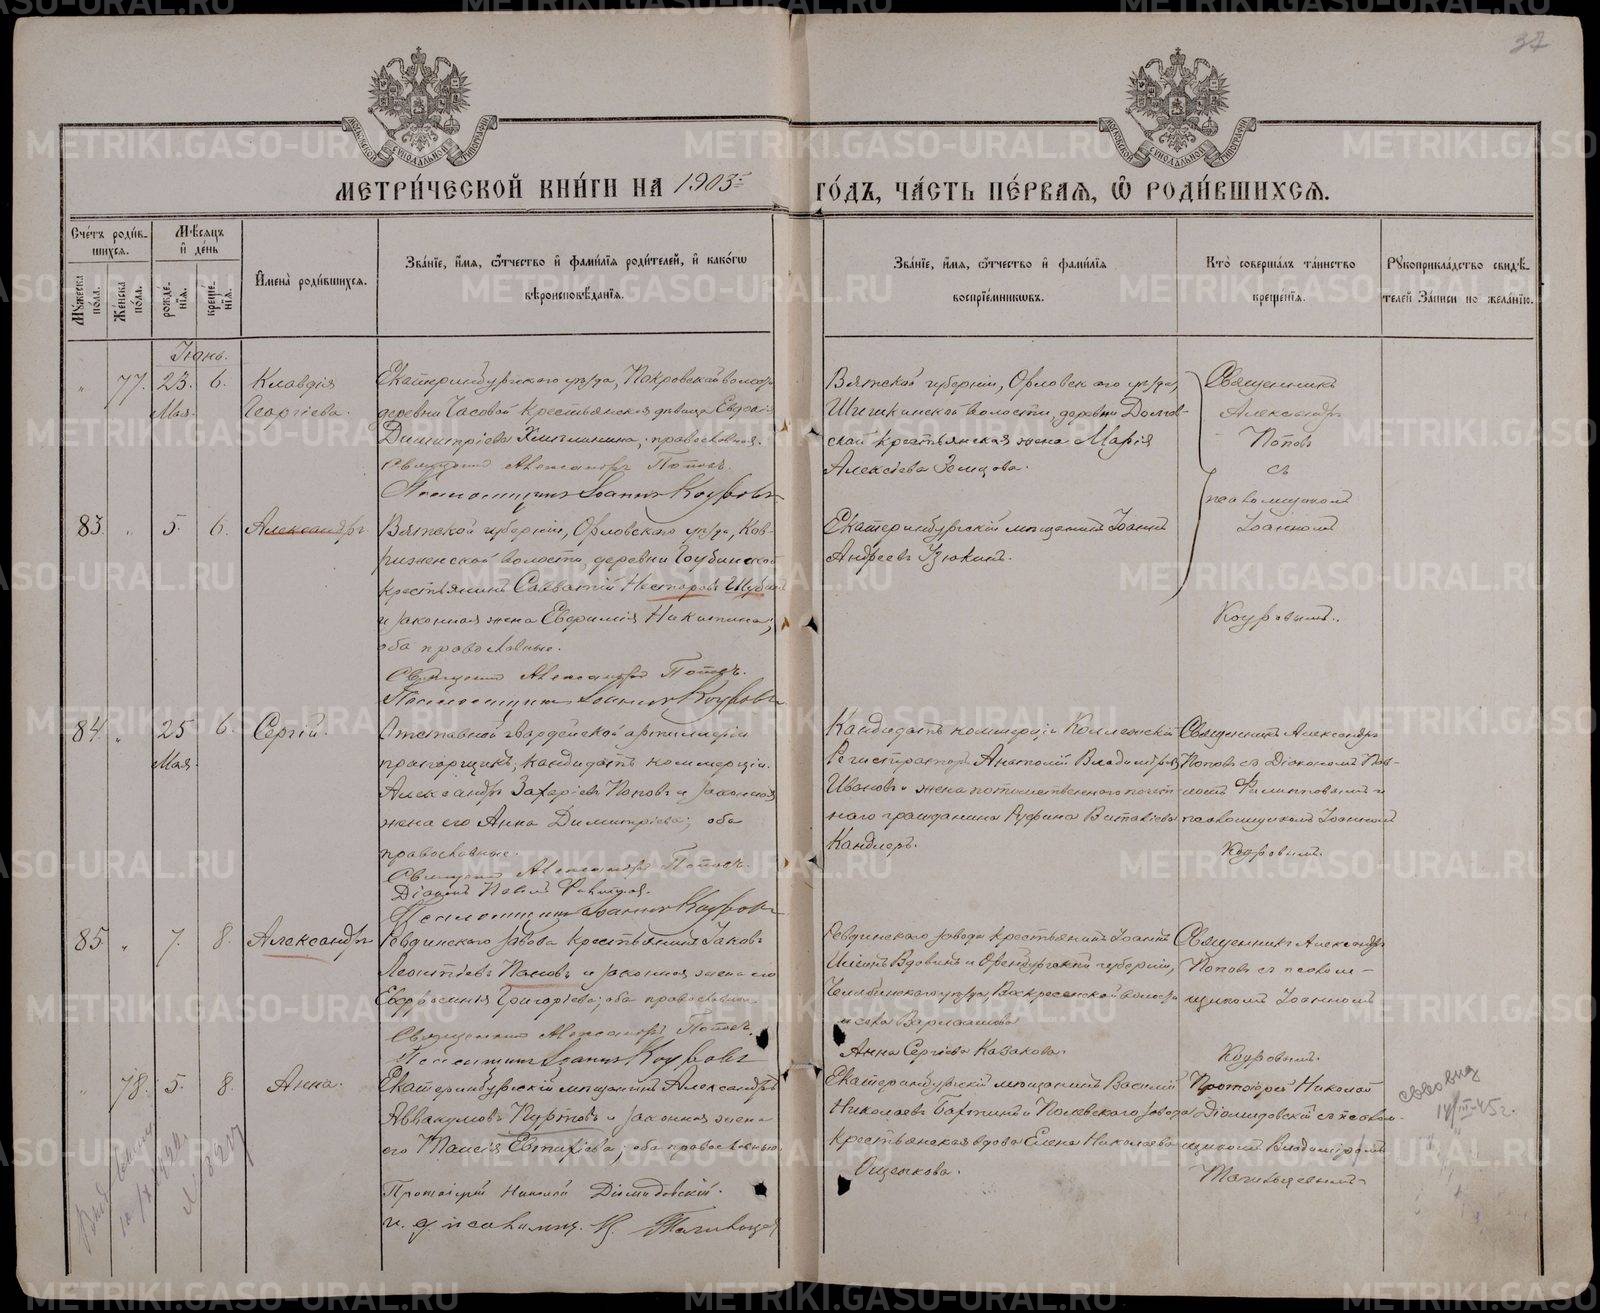 37
МОСКОВСКОЙ СѴНОДАЛЬНОЙ ТИПОГРАФІИ
МОСКОВСКОЙ СѴНОДАЛЬНОЙ ТИПОГРАФІИ
МЕТРИ́ЧЕСКОЙ КНИ́ГИ НА 1903 ГО́ДЪ, ЧА́СТЬ ПЕ́РВАЯ, Ѡ РОДИ́ВШИХСЯ.
Сче́тъ роди́вшихся.
Му́жеска по́ла.
Же́нска по́ла.
Мѣ́сяцъ и҆ де́нь
рожде́нїя.
креще́нїя.
И҆мена̀ роди́вшихся.
Зва́нїе, и҆́мя, ѻ҆́тчество и҆ фами́лїя роди́телей, и҆ како́гѡ вѣроисповѣ́данїя.
Зва́нїе, и҆́мя, ѻ҆́тчество и҆ фами́лїя воспрїе́мникѡвъ.
Кто̀ соверша́лъ та́инство креще́нїя.
Рꙋкоприкла́дство свидѣ́телей за́писи по жела́нїю.
Іюнь.
" 77. 23. 6.
Мая.
Клавдія
Георгіева.
Екатеринбургскаго уѣзда, Покровской волости
деревни Часовой крестьянская дѣвица Евдокія
Димитріева, православная.
Священникъ Александръ Поповъ.
Псаломщикъ Іоаннъ Коуровъ
Вятской губерніи, Орловскаго уѣзда,
волости, деревни
крестьянская жена Марія
Алексіева Земцова.
Священникъ
Александръ
Поповъ
съ
псаломщикомъ
Іоанномъ
Коуровымъ.
83. " 5. 6.
Александръ
Вятской губерніи, Орловскаго уѣзда,
волости, деревни
крестьянинъ Савватій Несторовъ
и законная жена Евфимія Никитина,
оба православные.
Священникъ Александръ Поповъ.
Псаломщикъ Іоаннъ Коуровъ
Екатеринбургскій мѣщанинъ Іоаннъ
Андреевъ Изюкинъ.
84. " 25 6.
Мая.
Сергій.
Отставной гвардейской артиллеріи
прапорщикъ, кандидатъ коммерціи
Александръ Захаріевъ Поповъ и законная
жена его Анна Димитріева; оба
православные.
Священникъ Александръ Поповъ.
Діаконъ Павелъ
Псаломщикъ Іоаннъ Коуровъ
Кандидатъ коммерціи Коллежскій
Регистраторъ Анатолій Владиміровъ
Ивановъ и жена потомственнаго почет-
наго гражданина Руфина Виталіева
Кандлеръ.
Священникъ Александръ
Поповъ съ Діакономъ Пав-
ломъ Филипповымъ и
псаломщикомъ Іоанномъ
Коуровымъ.
85. " 7. 8.
Александръ
Ревдинскаго завода крестьянинъ Іаковъ
Леонтіевъ Пановъ и законная жена его
Евфросинія Григоріева; оба православные.
Священникъ Александръ Поповъ.
Псаломщикъ Іоаннъ Коуровъ
Ревдинскаго завода крестьянинъ Іоаннъ
Ильинъ Вдовинъ и Оренбургской губерніи,
Челябинскаго уѣзда, Воскресенской волости
и села
Анна Сергіева Казакова.
Священникъ Александръ
Поповъ съ псалом-
щикомъ Іоанномъ
Коуровымъ.
" 78. 5. 8.
Анна.
Екатеринбургскій мѣщанинъ Александръ
Аввакумовъ Пуртовъ и законная жена
его Таисія Евтихіева; оба православные.
Протоіерей Николай Діомидовскій.
и. д. псаломщ. В.
Екатеринбургскій мѣщанинъ Василій
Николаевъ Бартинъ и Полевскаго завода
крестьянская вдова Елена Николаева
Ощепкова.
Протоіерей Николай
Діомидовскій съ псалом-
щикомъ Владиміромъ
14/III-45 г.
METRIKI.GASO-URAL.RU